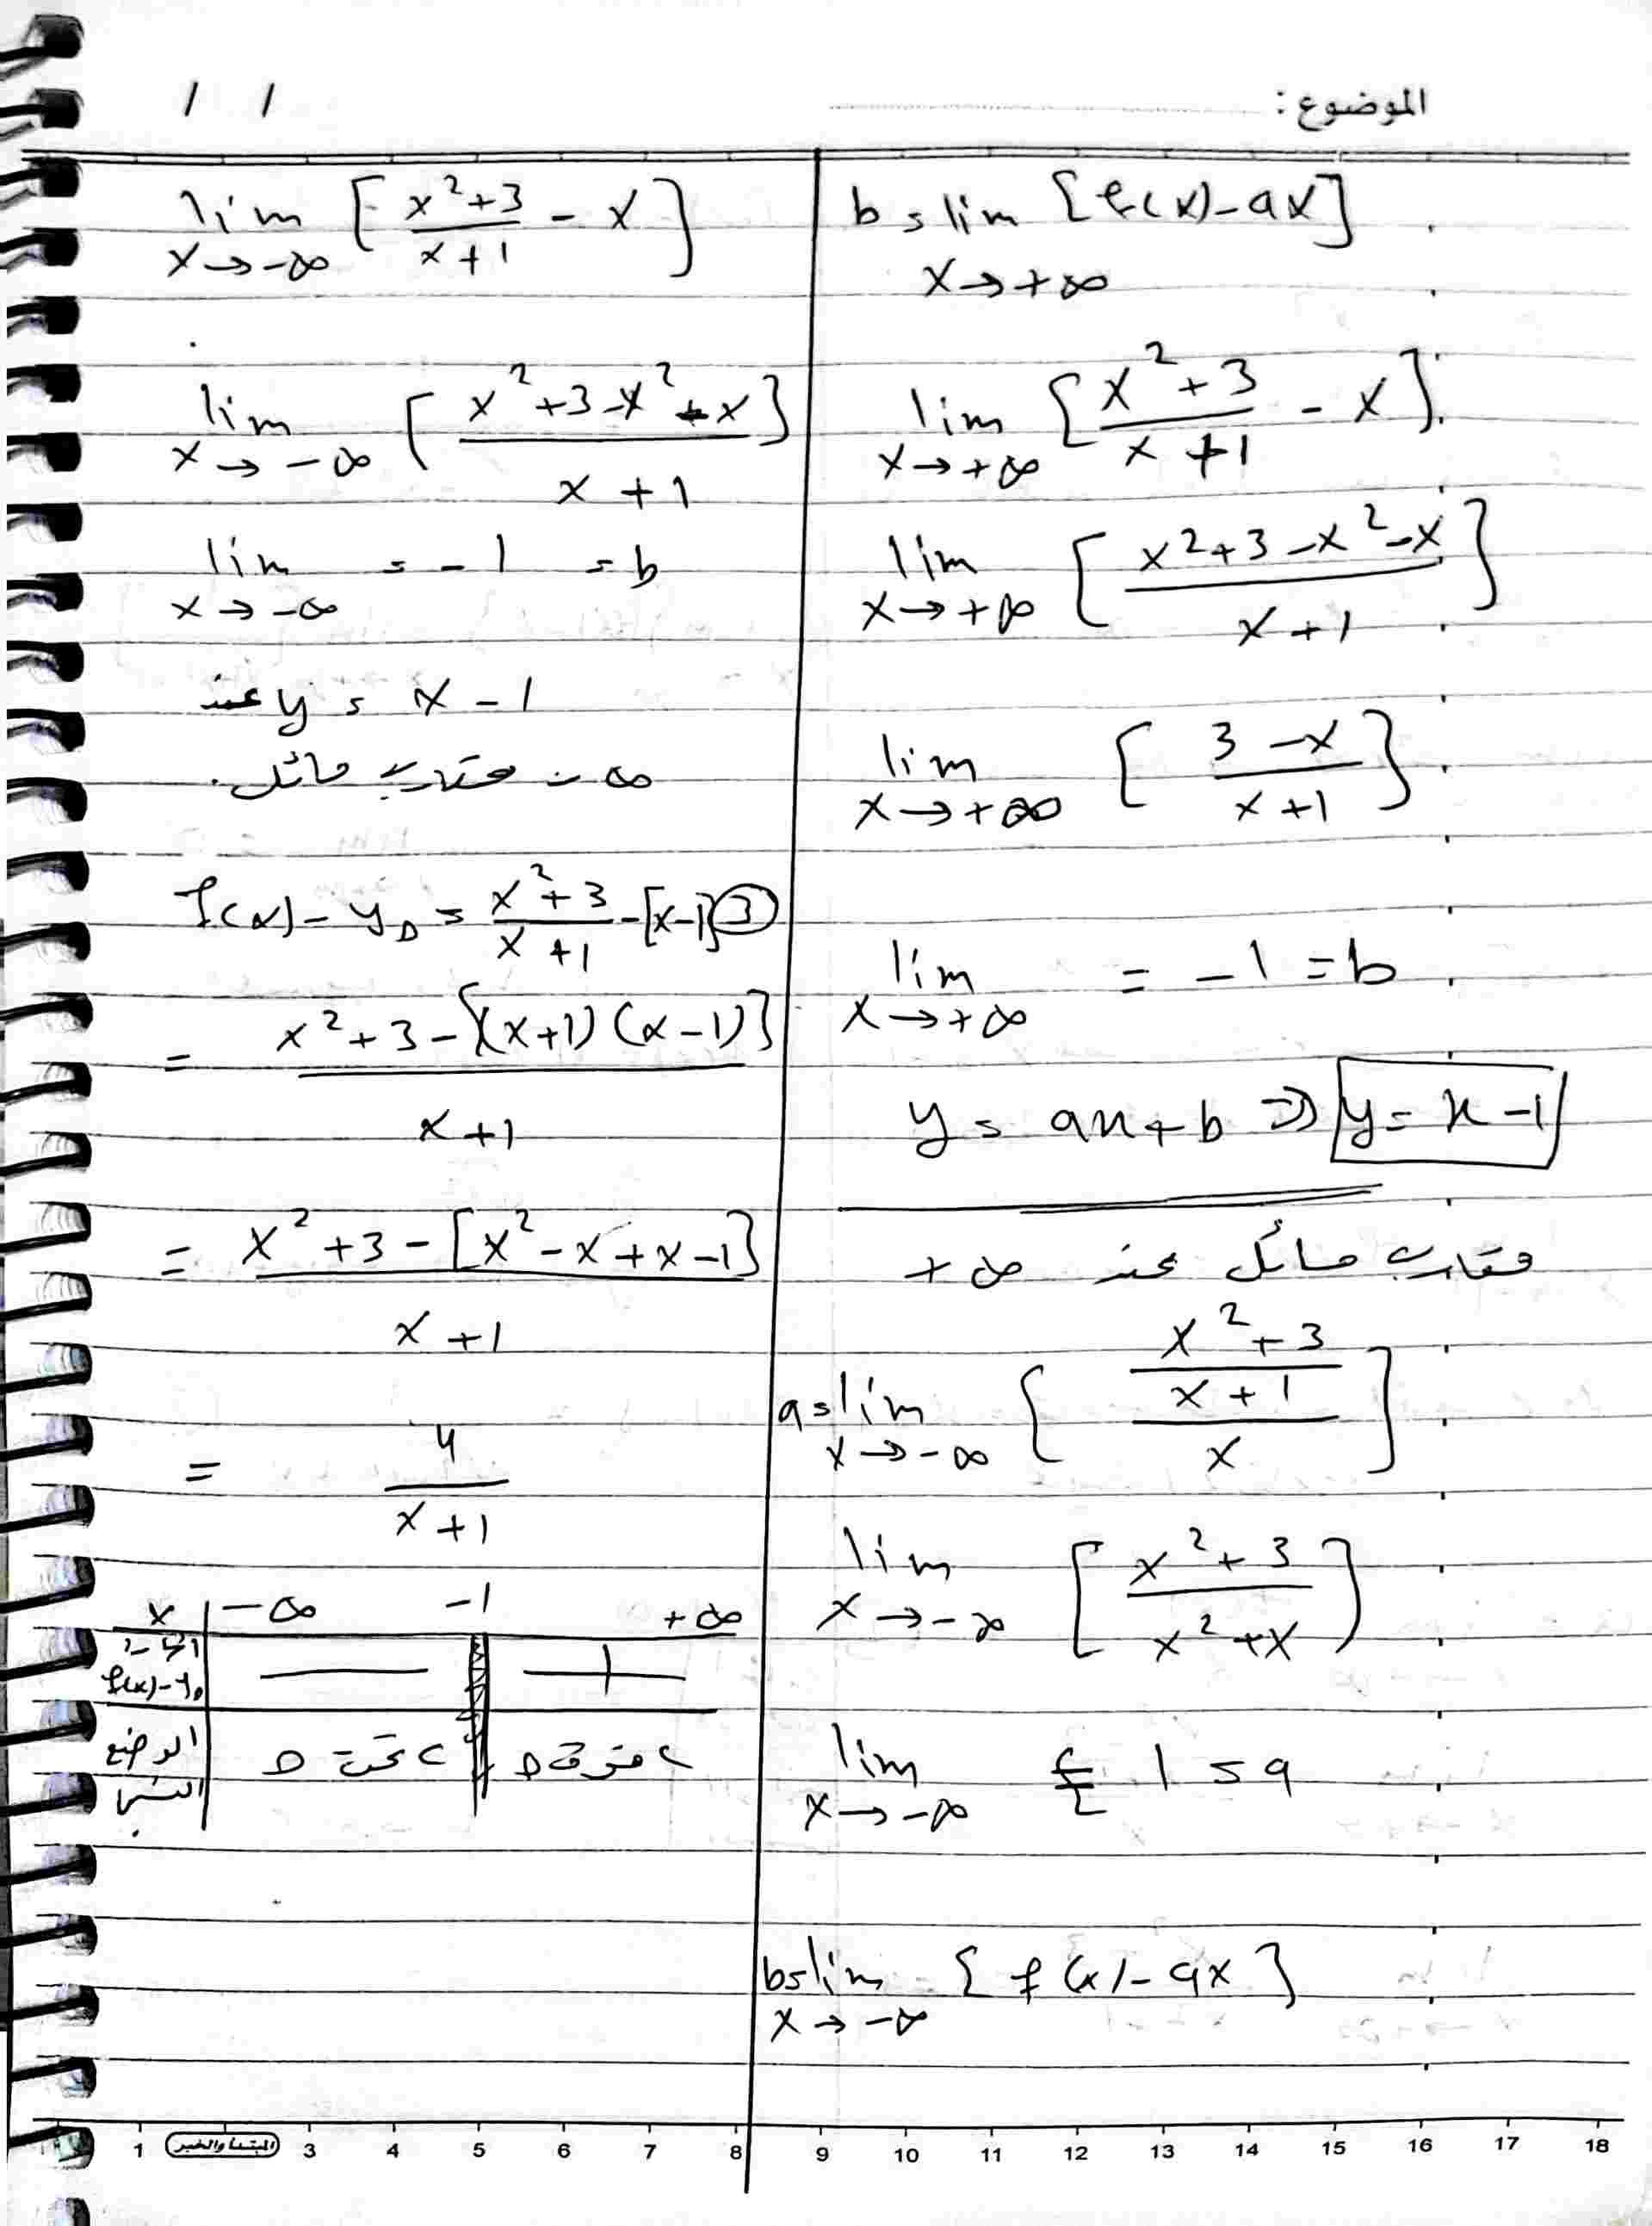 الموضوع :
/ /
b = lim [f(x) - ax]
x → +∞
lim [ (x² + 3)/(x + 1) - x ]
x → +∞
lim [ (x² + 3 - x² - x)/(x + 1) ]
x → +∞
lim [ (3 - x)/(x + 1) ]
x → +∞
lim = -1 = b
x → +∞
y = ax + b ⇒ y = x - 1
مقارب مائل عند +∞
a = lim [ ((x² + 3)/(x + 1))/x ]
x → -∞
lim [ (x² + 3)/(x² + x) ]
x → -∞
lim = 1 = a
x → -∞
b = lim [ f(x) - ax ]
x → -∞
lim [ (x² + 3)/(x + 1) - x ]
x → -∞
lim [ (x² + 3 - x² - x)/(x + 1) ]
x → -∞
lim = -1 = b
x → -∞
y = x - 1 عند
-∞ مقارب مائل.
③ f(x) - y_D = (x² + 3)/(x + 1) - [x - 1]
= (x² + 3 - [(x + 1)(x - 1)])/(x + 1)
= (x² + 3 - [x² - x + x - 1])/(x + 1)
= 4/(x + 1)
x | -∞ -1 +∞
f(x) - y_D | - || +
الوضع النسبي | C تحت D || C فوق D
1 المبتدأ والخبر 3 4 5 6 7 8 9 10 11 12 13 14 15 16 17 18